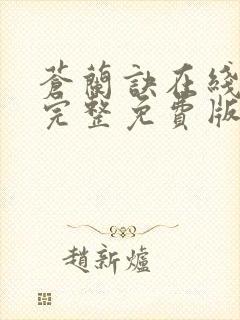 蒼蘭訣在綫
完整免費版
趙新爐